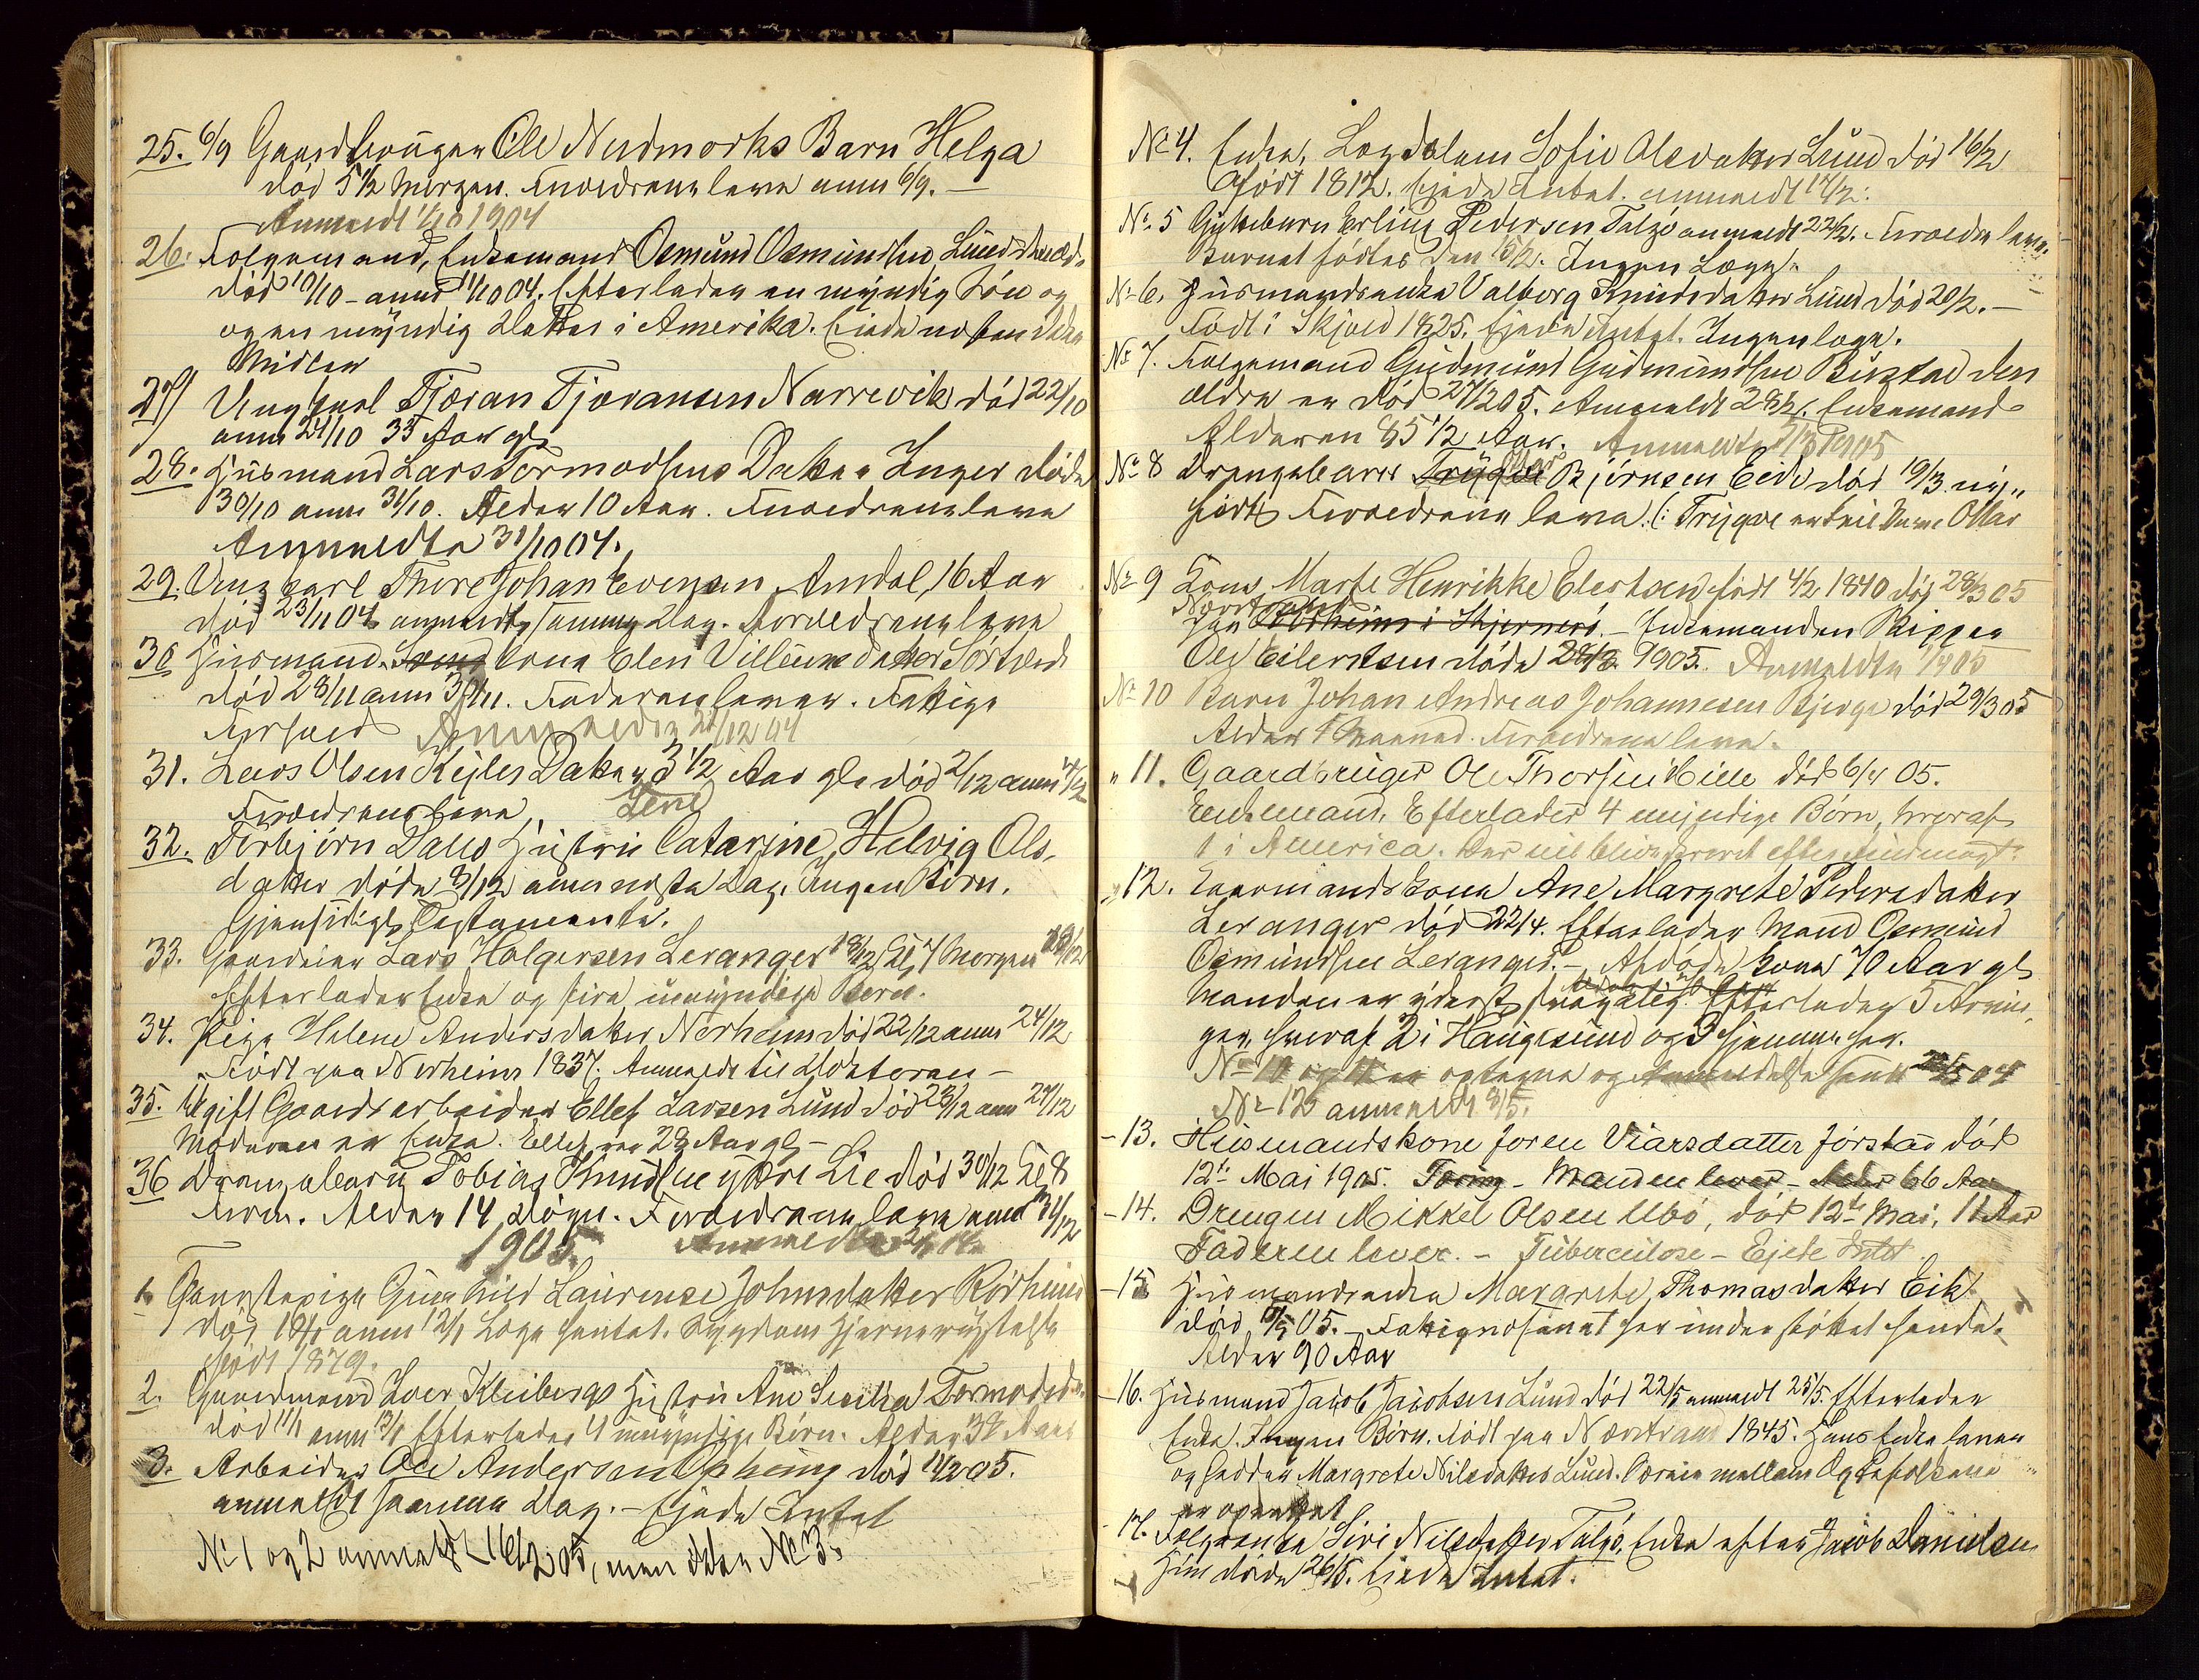 25. 6/9 Gaardbruger Ole Nedmorks Barn Helga
død 5 1/2 Morgen. Forældrene leve anm 6/9. —
Anmeldt 1/10 1904
26. Folgemand, Enkemand Osmund Osmundsen Lunds
død 10/10 - anm 11/10 04. Efterlader en myndig Søn og
og en myndig Datter i Amerika. Eiede næsten
Midler
27) Ungkarl Tjeran Tjeransen Narrevik død 22/10
anm 24/10 33 Aar gl
28. Husmand Lars Tormodsens Datter Inger døde
30/10 anm 31/10. Alder 10 Aar. Forældrene leve
Anmeldte 31/10 04.
29. Ungkarl Thore Johan Evensen Amdal, 16 Aar
død 23/11 04 anmeldt samme Dag. Forældrene leve
30 Husmand Kone Elen Villumsdatter
død 28/11 anm 30/11. Faderen lever. Fattige
Forhold Anmeldte 2/12 04
31. Lars Olsen Kigles Datter 3 1/2 Aar gl. død 2/12 anm 4/12
Forældrene leve, Lene
32. Torbjørn Dales Hustru Catarine Helvig Ols-
datter døde 8/12 anm næste Dag. Ingen Børn.
Gjensidigt Testamente.
33. Gaardeier Lars Holgersen Leranger 18/12 Kl 7 Morgen 18/12
Efterlader Enke og fire umyndige Børn.
34. Pige Helene Andersdatter Nerheim død 22/12 anm 24/12
Født paa Nerheim 1837. Anmeldt til Doktoren —
35. Ugift Gaardsarbeider Ellef Larsen Lund død 23/12 anm 24/12
Moderen er Enke. Ellef var 28 Aar gl —
36 Drengebarn Tobias Knudsen ytre Lie død 30/12 Kl 8
Form. Alder 14 Døgn. Forældrene leve anm 31/12
1905. Anmeldte
1. Tjenestepige Gunhild Laurense Johnsdatter Rørheim
død 10/1 anm 12/1 Læge hentet. Sygdom Hjernerystelse
født 1879.
2. Gaardmand Iver Kleibergs Hustru Ane Serina Tormodsd.
død 11/1 anm 13/1 Efterlader 4 umyndige Børn. Alder 38 Aar
3. Arbeider Ole Andersen død 14/2 05.
anmeldt samme Dag. — Eiede Intet
No 1 og 2 anmeldt 16/2 05, men ikke No 3.
No 4. Enke, Lægdslem Sofie Olsdatter Lund død 16/2
Født 1812. Eiede Intet. anmeldt 17/2.
No 5 Gutebarn Erling Pedersen Talgø anmeldt 22/2. Forældre leve.
Barnet fødtes den 15/2. Ingen Læge.
No 6. Husmandsenke Valborg Knudsdatter Lund død 20/2. —
Født i Skjold 1825. Eiede Intet. Ingen Læge.
No 7. Folgemand Gudmund Gudmundsen den
ældre er død 27/2 05. Anmeldt 28/2. Enkemand
Alderen 85 1/2 Aar. Anmeldte 1905
No 8 Drengebarn Trygve Bjørnsen Eide død 19/3. ny-
født Forældrene leve. (: Trygve er feil Navn Ollar
No 9 Kone Marte Henrikke Elertsen født 4/2 1840 død 28/3 05
paa i . — Enkemanden Skipper
Ole Eilertsen døde 1905. Anmeldte 1905
No 10 Barn Johan Andreas Johannesen Bjerga død 29/3 05
Alder 1 Maaned. Forældrene leve.
" 11. Gaardbruger Ole Thorsen Hille død 6/4 05.
Enkemand. Efterlader 4 myndige Børn, hvoraf
1 i America.
" 12. Kaarmandskone Ane Margrete Pedersdatter
Leranger død 22/4. Efterlader Mand Osmund
Osmundsen Leranger. — Afdøde Kone 70 Aar gl
Manden er yderst Efterlader 5 Arvin-
ger, hvoraf 2 i Haugesund og 3 hjemme her.
No 10 og 11 er
No 12 anmeldt 8/5.
- 13. Husmandskone Joren Viarsdatter Jørstad død
12te Mai 1905. - Manden lever - Alder 66 Aar
- 14. Drengen Mikkel Olsen Ubø, død 12te Mai, 11 Aar
Faderen lever. - Tuberculose - Ejede Intet.
- 15 Husmandsenke Margrete Thomasdatter Eik
død /5 05. — Fattigvæsenet har understøttet hende.
Alder 90 Aar
- 16. Husmand Jacob Jacobsen Lund død 22/5 anmeldt 25/5. Efterlader
Enke. Ingen Børn. Født paa Nærstrand 1845. Hans Enke lever
og hedder Margrete Nilsdatter Lund.
er oprettet
- 17. Folgeenke Siri Nilsdatter Talgø, Enke efter Jacob Danielsen
Hun døde 26/5. Eiede Intet.